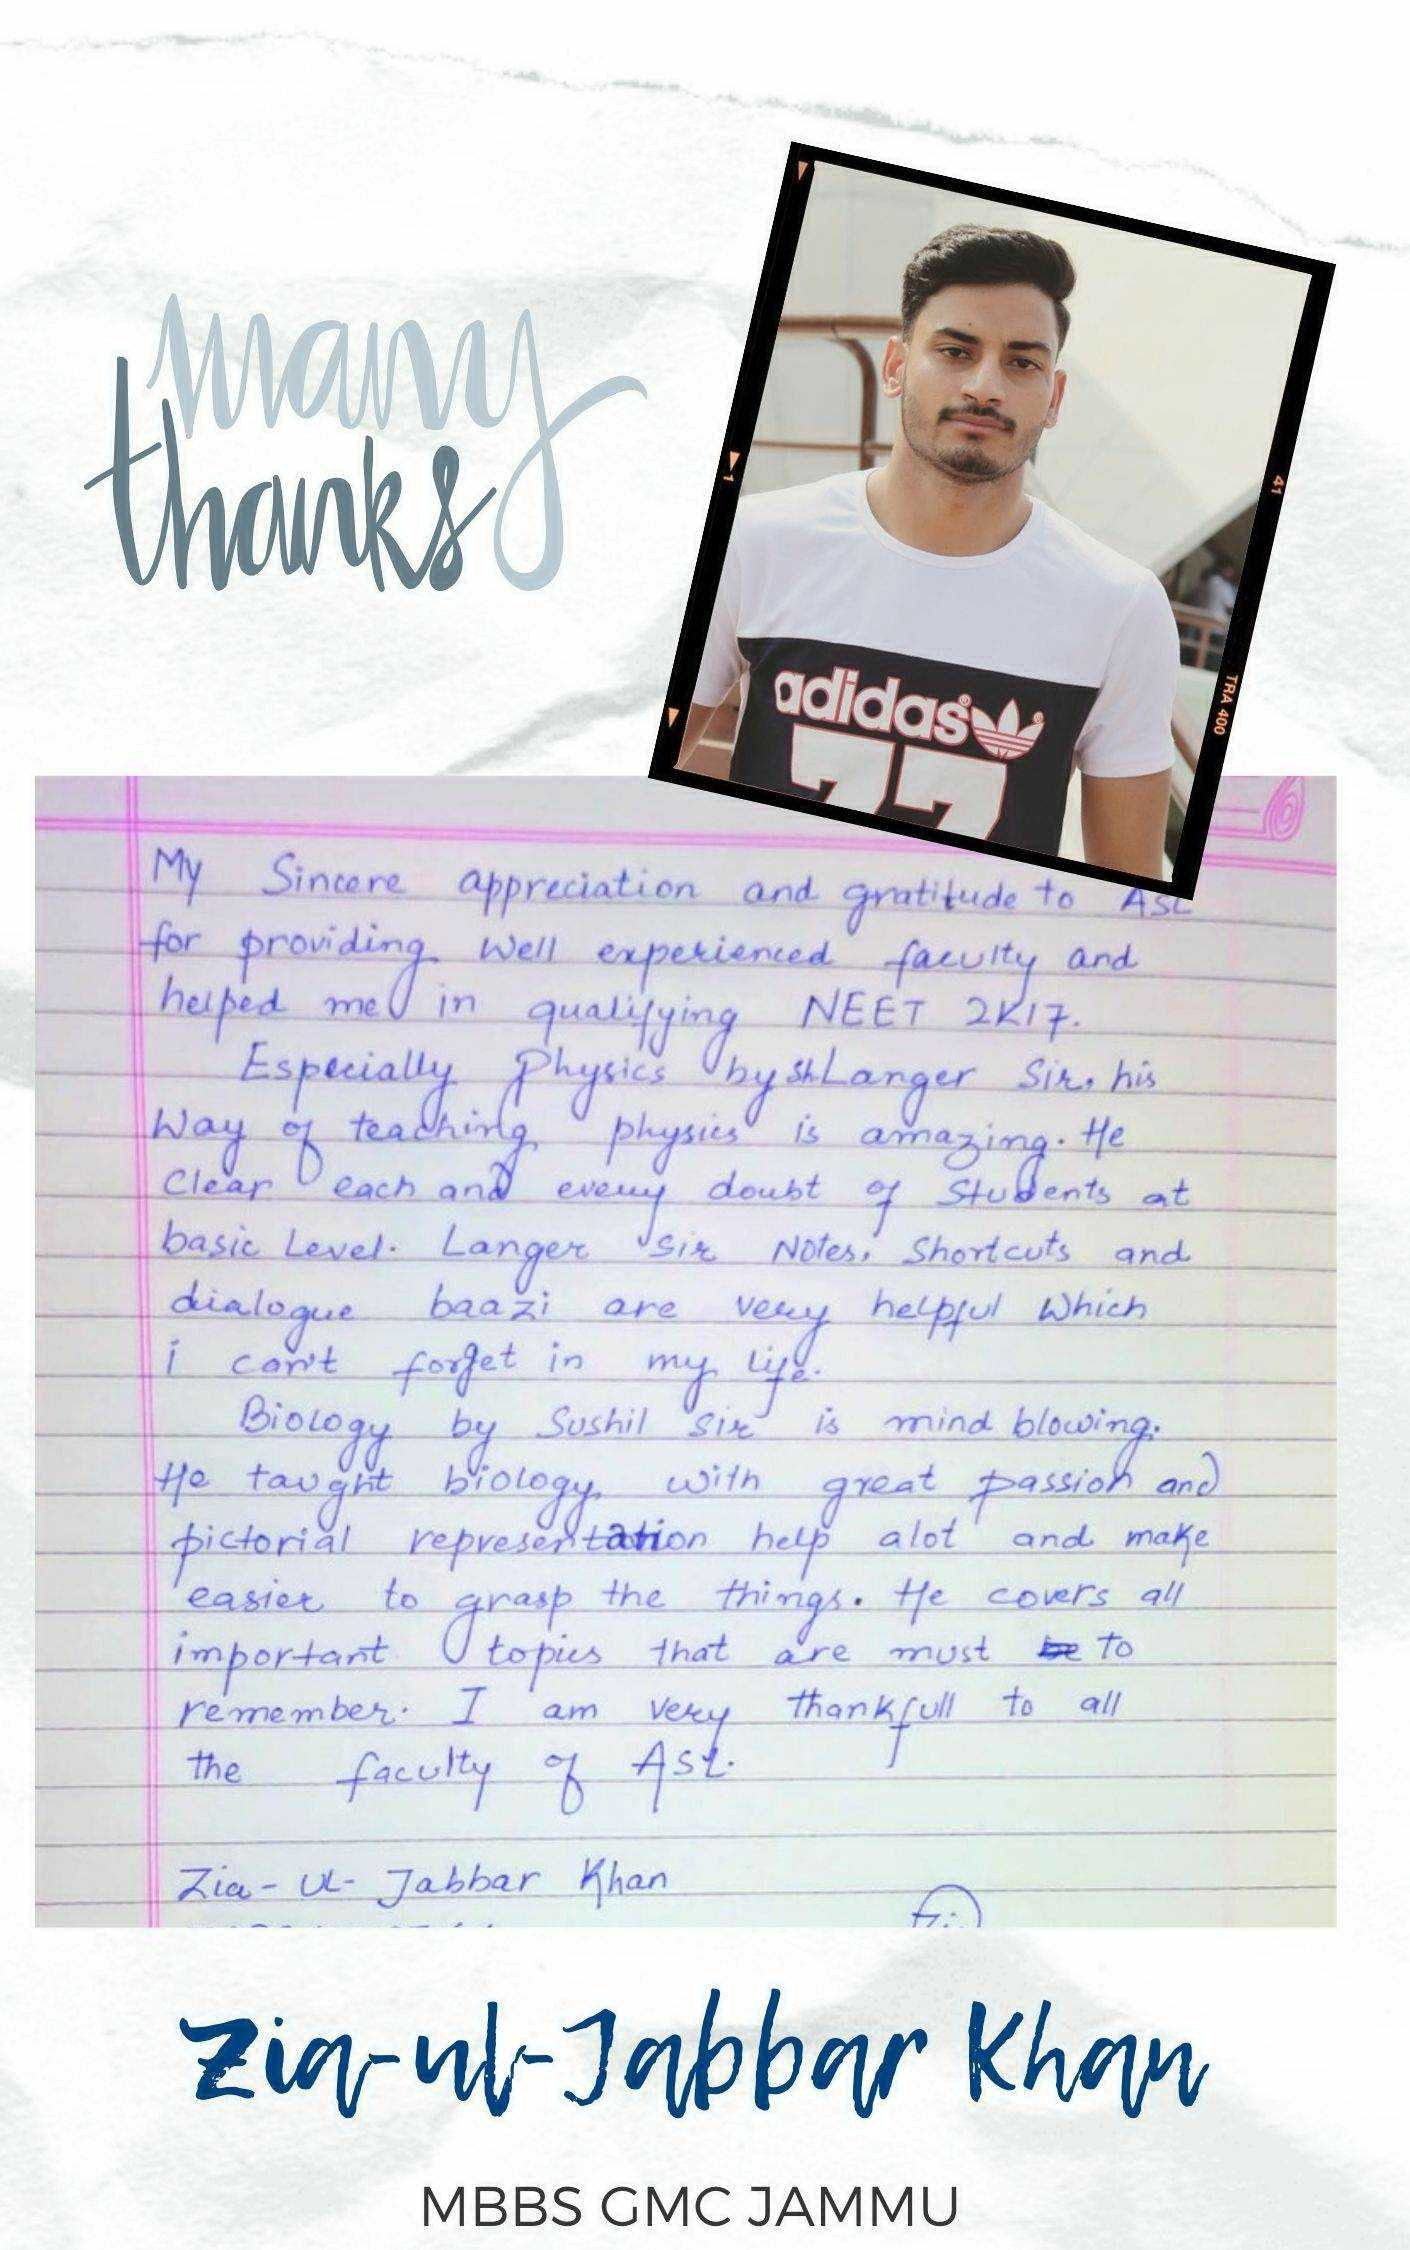 many
thanks
adidas
77
1
41
TRA 400
My Sincere appreciation and gratitude to ASL
for providing well experienced faculty and
helped me in qualifying NEET 2K17.
Especially Physics by Sh Langer Sir, his
Way of teaching physics is amazing. He
Clear each and every doubt of Students at
basic Level. Langer Sir Notes, Shortcuts and
dialogue baazi are very helpful Which
i can't forget in my life.
Biology by Sushil Sir is mind blowing.
He taught biology with great passion and
pictorial representation help alot and make
easier to grasp the things. He covers all
important topics that are must to
remember. I am very thankfull to all
the faculty of ASL.
Zia-ul-Jabbar Khan
Zia-ul-Jabbar Khan
MBBS GMC JAMMU